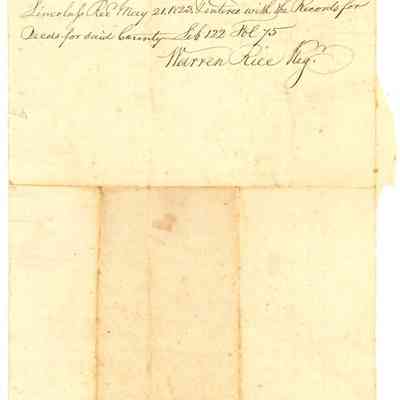 Lincoln ss Rec May 21. 1823 & entered with the Records for
Deeds for said County Lib 122 Fol 75
Warren Rice Regr